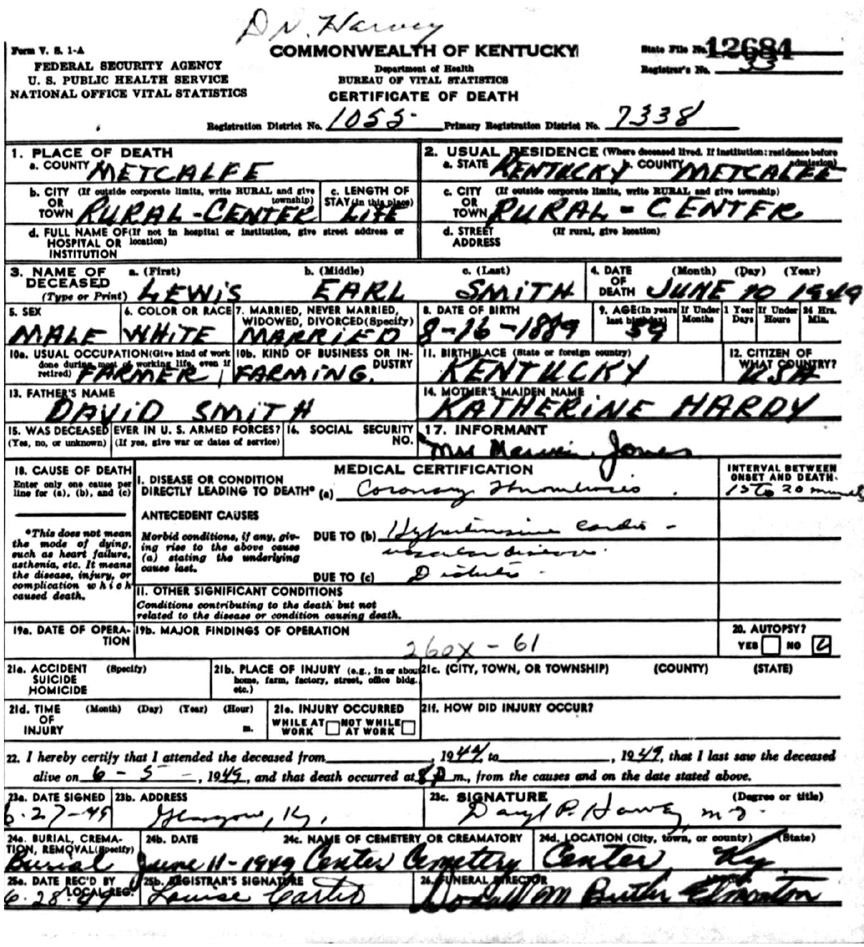 Dr. Harvey
Form V. S. 1-A
COMMONWEALTH OF KENTUCKY
State File No. 12684
FEDERAL SECURITY AGENCY
Department of Health
Registrar's No. 33
U. S. PUBLIC HEALTH SERVICE
BUREAU OF VITAL STATISTICS
NATIONAL OFFICE VITAL STATISTICS
CERTIFICATE OF DEATH
Registration District No. 1055 Primary Registration District No. 7338
1. PLACE OF DEATH
a. COUNTY METCALFE
2. USUAL RESIDENCE (Where deceased lived. If institution: residence before admission)
a. STATE KENTUCKY b. COUNTY METCALFE
b. CITY (If outside corporate limits, write RURAL and give township)
OR TOWN RURAL-CENTER
c. LENGTH OF STAY (in this place)
LIFE
c. CITY (If outside corporate limits, write RURAL and give township)
OR TOWN RURAL - CENTER
d. FULL NAME OF (If not in hospital or institution, give street address or location)
HOSPITAL OR INSTITUTION
d. STREET ADDRESS (If rural, give location)
3. NAME OF DECEASED (Type or Print)
a. (First) b. (Middle) c. (Last)
LEWIS EARL SMITH
4. DATE OF DEATH (Month) (Day) (Year)
JUNE 10 1949
5. SEX
MALE
6. COLOR OR RACE
WHITE
7. MARRIED, NEVER MARRIED, WIDOWED, DIVORCED (Specify)
MARRIED
8. DATE OF BIRTH
8-26-1889
9. AGE (In years last birthday) If Under 1 Year Months Days If Under 24 Hrs. Hours Min.
59
10a. USUAL OCCUPATION (Give kind of work done during most of working life, even if retired)
FARMER
10b. KIND OF BUSINESS OR INDUSTRY
FARMING.
11. BIRTHPLACE (State or foreign country)
KENTUCKY
12. CITIZEN OF WHAT COUNTRY?
USA
13. FATHER'S NAME
DAVID SMITH
14. MOTHER'S MAIDEN NAME
KATHERINE HARDY
15. WAS DECEASED EVER IN U. S. ARMED FORCES?
(Yes, no, or unknown) (If yes, give war or dates of service)
16. SOCIAL SECURITY NO.
17. INFORMANT
Mrs Jones
18. CAUSE OF DEATH
Enter only one cause per line for (a), (b), and (c)
MEDICAL CERTIFICATION
INTERVAL BETWEEN ONSET AND DEATH
I. DISEASE OR CONDITION DIRECTLY LEADING TO DEATH* (a) Coronary Thrombosis.
15 to 20 minutes
*This does not mean the mode of dying, such as heart failure, asthenia, etc. It means the disease, injury, or complication which caused death.
ANTECEDENT CAUSES
Morbid conditions, if any, giving rise to the above cause (a) stating the underlying cause last.
DUE TO (b) Hypertensive cardio-
vascular disease.
DUE TO (c) Diabetes
II. OTHER SIGNIFICANT CONDITIONS
Conditions contributing to the death but not related to the disease or condition causing death.
19a. DATE OF OPERATION
19b. MAJOR FINDINGS OF OPERATION
260X - 61
20. AUTOPSY?
YES NO
21a. ACCIDENT SUICIDE HOMICIDE (Specify)
21b. PLACE OF INJURY (e.g., in or about home, farm, factory, street, office bldg. etc.)
21c. (CITY, TOWN, OR TOWNSHIP) (COUNTY) (STATE)
21d. TIME OF INJURY (Month) (Day) (Year) (Hour) m.
21e. INJURY OCCURRED
WHILE AT WORK NOT WHILE AT WORK
21f. HOW DID INJURY OCCUR?
22. I hereby certify that I attended the deceased from , 1944, to , 1949, that I last saw the deceased
alive on 6 - 5 -, 1949, and that death occurred at 8 P m., from the causes and on the date stated above.
23a. DATE SIGNED
6-27-49
23b. ADDRESS
Glasgow, Ky.
23c. SIGNATURE (Degree or title)
Daryl P. Harvey M.D.
24a. BURIAL, CREMATION, REMOVAL (Specify)
Burial
24b. DATE
June 11-1949
24c. NAME OF CEMETERY OR CREAMATORY
Center Cemetery
24d. LOCATION (City, town, or county) (State)
Center Ky
25a. DATE REC'D BY LOCAL REG.
6-28-49
25b. REGISTRAR'S SIGNATURE
Louise Carter
26. FUNERAL DIRECTOR
M Butler Edmonton